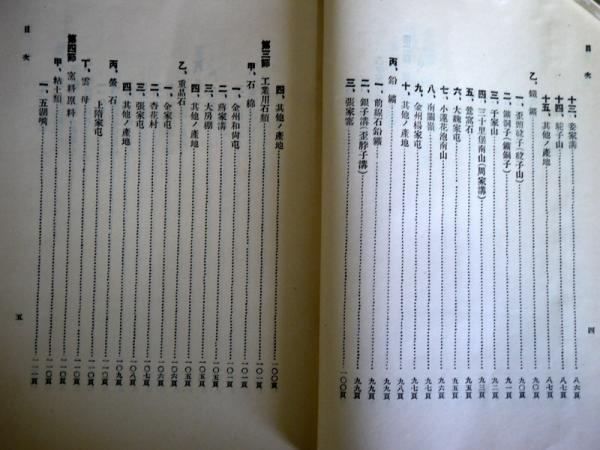 目次
十三、姜家溝……八六頁
十四、駝子山……八七頁
十五、其他ノ產地……八七頁
乙、鐵鑛……九〇頁
一、歪磖砬子(砬子山)……九〇頁
二、鐵洞子(鐵銅子)……九一頁
三、于家山……九二頁
四、三十里堡南山(周家溝)……九三頁
五、鶯窩石……九五頁
六、大魏家屯……九五頁
七、小蓮花泡南山……九六頁
八、南關嶺……九七頁
九、金州楊家屯……九七頁
十、其他ノ產地……九八頁
丙、鉛鑛……九九頁
一、前緣石鉛鑛……九九頁
二、銀子溝(歪脖子溝)……九九頁
三、張家窰……一〇〇頁
四
目次
四、其他ノ產地……一〇〇頁
第三節 工業用石類……一〇一頁
甲、石綿……一〇一頁
一、金州和尙屯……一〇一頁
二、蔣家溝……一〇四頁
三、大房棚……一〇五頁
四、其他ノ產地……一〇五頁
乙、重晶石……一〇六頁
一、金家屯……一〇六頁
二、杏花村……一〇七頁
三、張家屯……一〇七頁
四、其他ノ產地……一〇八頁
丙、螢石……一〇九頁
上隋家屯……一〇九頁
丁、雲母……一〇頁
第四節 窯料原料……
甲、粘土類……
一、五湖嘴……一一一頁
五